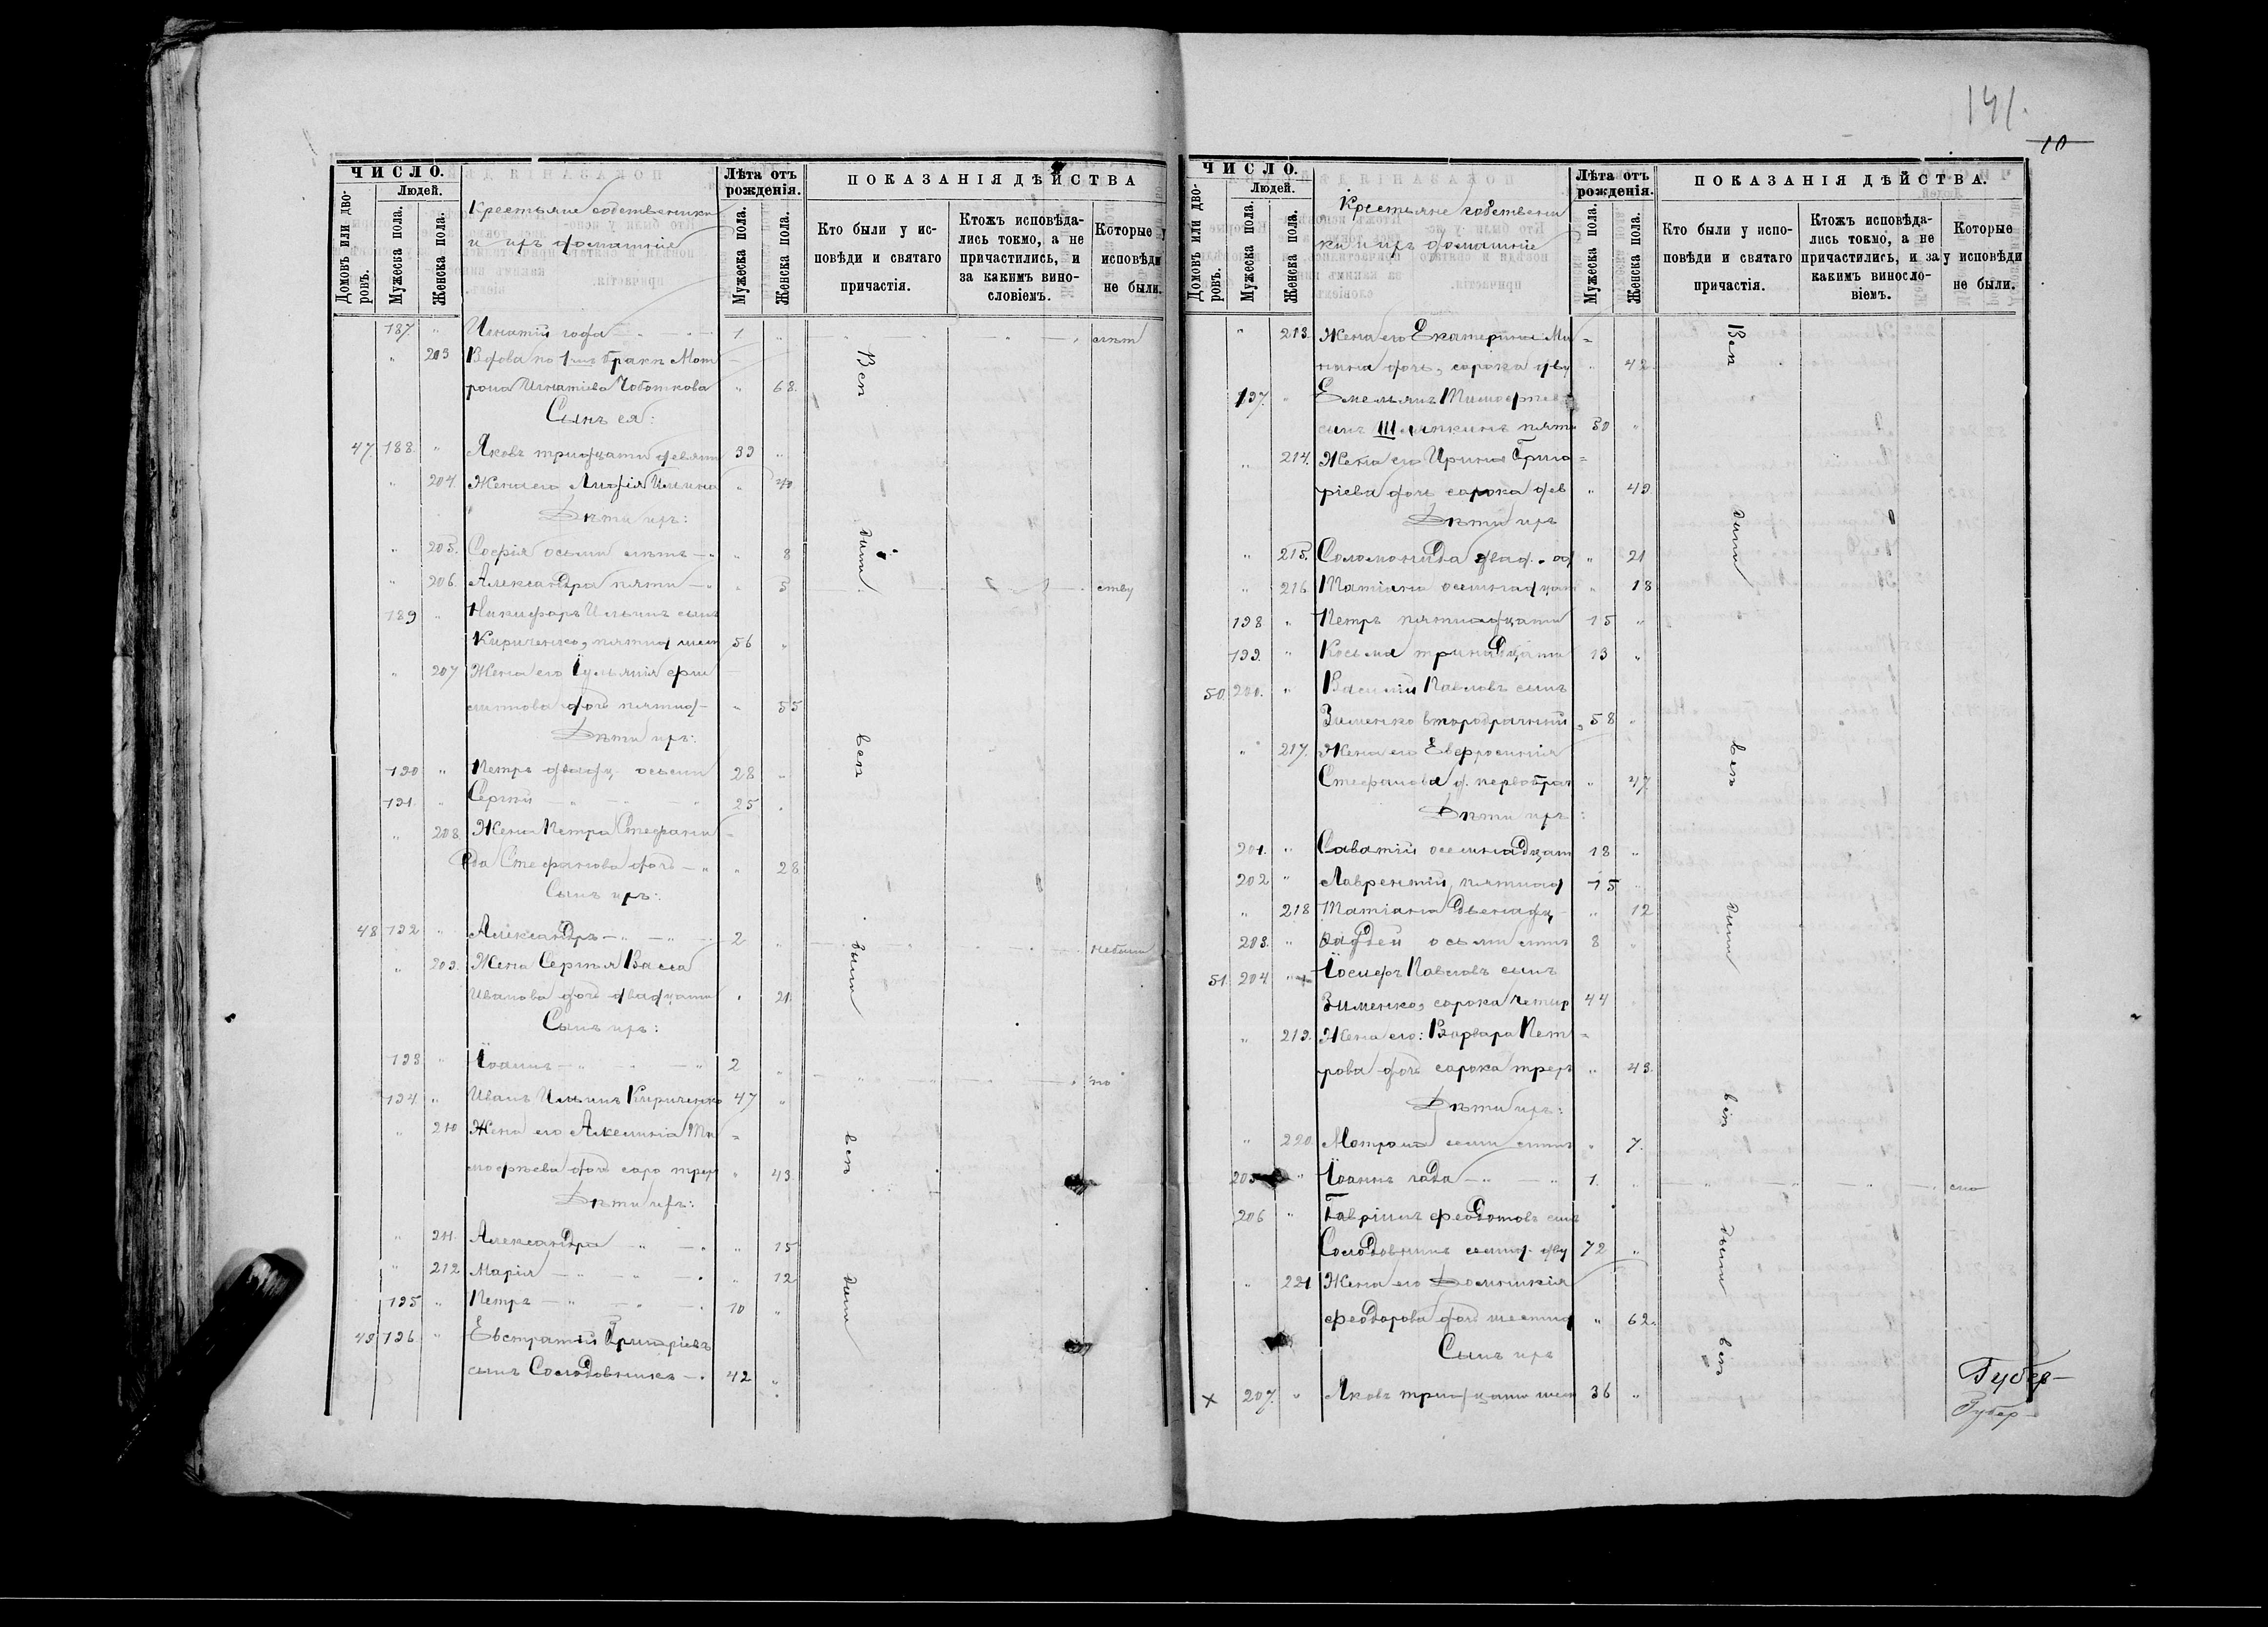 141.
10
ЧИСЛО.
Домовъ или дворовъ.
Людей.
Мужеска пола.
Женска пола.
Крестьяне собственники
и ихъ домашніе
Лѣта отъ рожденія.
Мужеска пола.
Женска пола.
ПОКАЗАНІЯ ДѢЙСТВА
Кто были у исповѣди и святаго причастія.
Ктожъ исповѣдались токмо, а не причастились, и за какимъ винословіемъ.
Которые у исповѣди не были.
187. " Игнатій года 1 "
" 203 Вдова по 1мъ бракѣ Мат
рона Игнатіева Чоботкова " 68.
Сынъ ея:
47. 188. " Яковъ тридцати девяти 39 "
" 204. Жена его Лидія Ильина " 40
Дѣти ихъ:
" 205. Софія осьми лѣтъ " 8
" 206. Александра пяти " 5
189 " Никифоръ Ильинъ сынъ
Кириченко, пятид шест 56 "
" 207 Жена его Іуліанія Фи
липпова дочь пятид " 55
Дѣти ихъ:
190 " Петръ двадц. осьми 28 "
191. " Сергій 25 "
" 208. Жена Петра Стефани
да Стефанова дочь " 28
Сынъ ихъ:
48 192 " Александръ 2 " небыли
" 209. Жена Сергія Васса
Иванова дочь двадцати " 21.
Сынъ ихъ:
193 " Іоаннъ 2 " по
194. " Иванъ Ильинъ Кириченко 47 "
" 210 Жена его Акелина Ти
мофѣева дочь соро трех " 43.
Дѣти ихъ:
" 211. Александра " 15
" 212 Марія " 12
195 " Петръ 10 "
49 196 " Евстратій Григоріевъ
сынъ Солодовникъ 42 "
Всѣ были всѣ были всѣ были
ЧИСЛО.
Домовъ или дворовъ.
Людей.
Мужеска пола.
Женска пола.
Крестьяне собственни
ки и ихъ домашніе
Лѣта отъ рожденія.
Мужеска пола.
Женска пола.
ПОКАЗАНІЯ ДѢЙСТВА.
Кто были у исповѣди и святаго причастія.
Ктожъ исповѣдались токмо, а не причастились, и за какимъ винословіемъ.
Которые у исповѣди не были.
" 213. Жена его Екатерина Ми
нина дочь, сорока дву " 42.
197. " Емельянъ Тимофѣев
сынъ пяти 50 "
" 214. Жена его Ирина Григо
ріева дочь сорока дев " 49
Дѣти ихъ
" 215. Соломонида двад. од " 21
" 216 Татіана осьмнадцат " 18
198 " Петръ пятнадцати 15 "
199. " Косьма тринадцати 13 "
50. 200. " Василій Павловъ сынъ
Зименко второбрачный 58 "
" 217. Жена его Евфросинія
Стефанова д. первобрач " 47.
Дѣти ихъ:
201. " Саватій осьмнадцат 18 "
202 " Лаврентій, пятнад 15 "
" 218 Татіана двенадц " 12
203. " Фаддей осьми лѣтъ 8 "
51. 204 " Іосифъ Павловъ сынъ
Зименко, сорока четыр 44
" 219. Жена его: Варвара Пет
рова дочь сорока трехъ " 43.
Дѣти ихъ:
" 220. Матрона семи лѣтъ " 7.
205 " Іоаннъ года 1. "
206 " Гавріилъ Феодотовъ сынъ
Солодовникъ семид. дву 72 "
" 221 Жена его Домникія
Феодорова дочь шестид " 62.
Сынъ ихъ
× 207. " Яковъ тридцати шест 36 "
Всѣ были всѣ были всѣ были всѣ
Губер-
Губер-